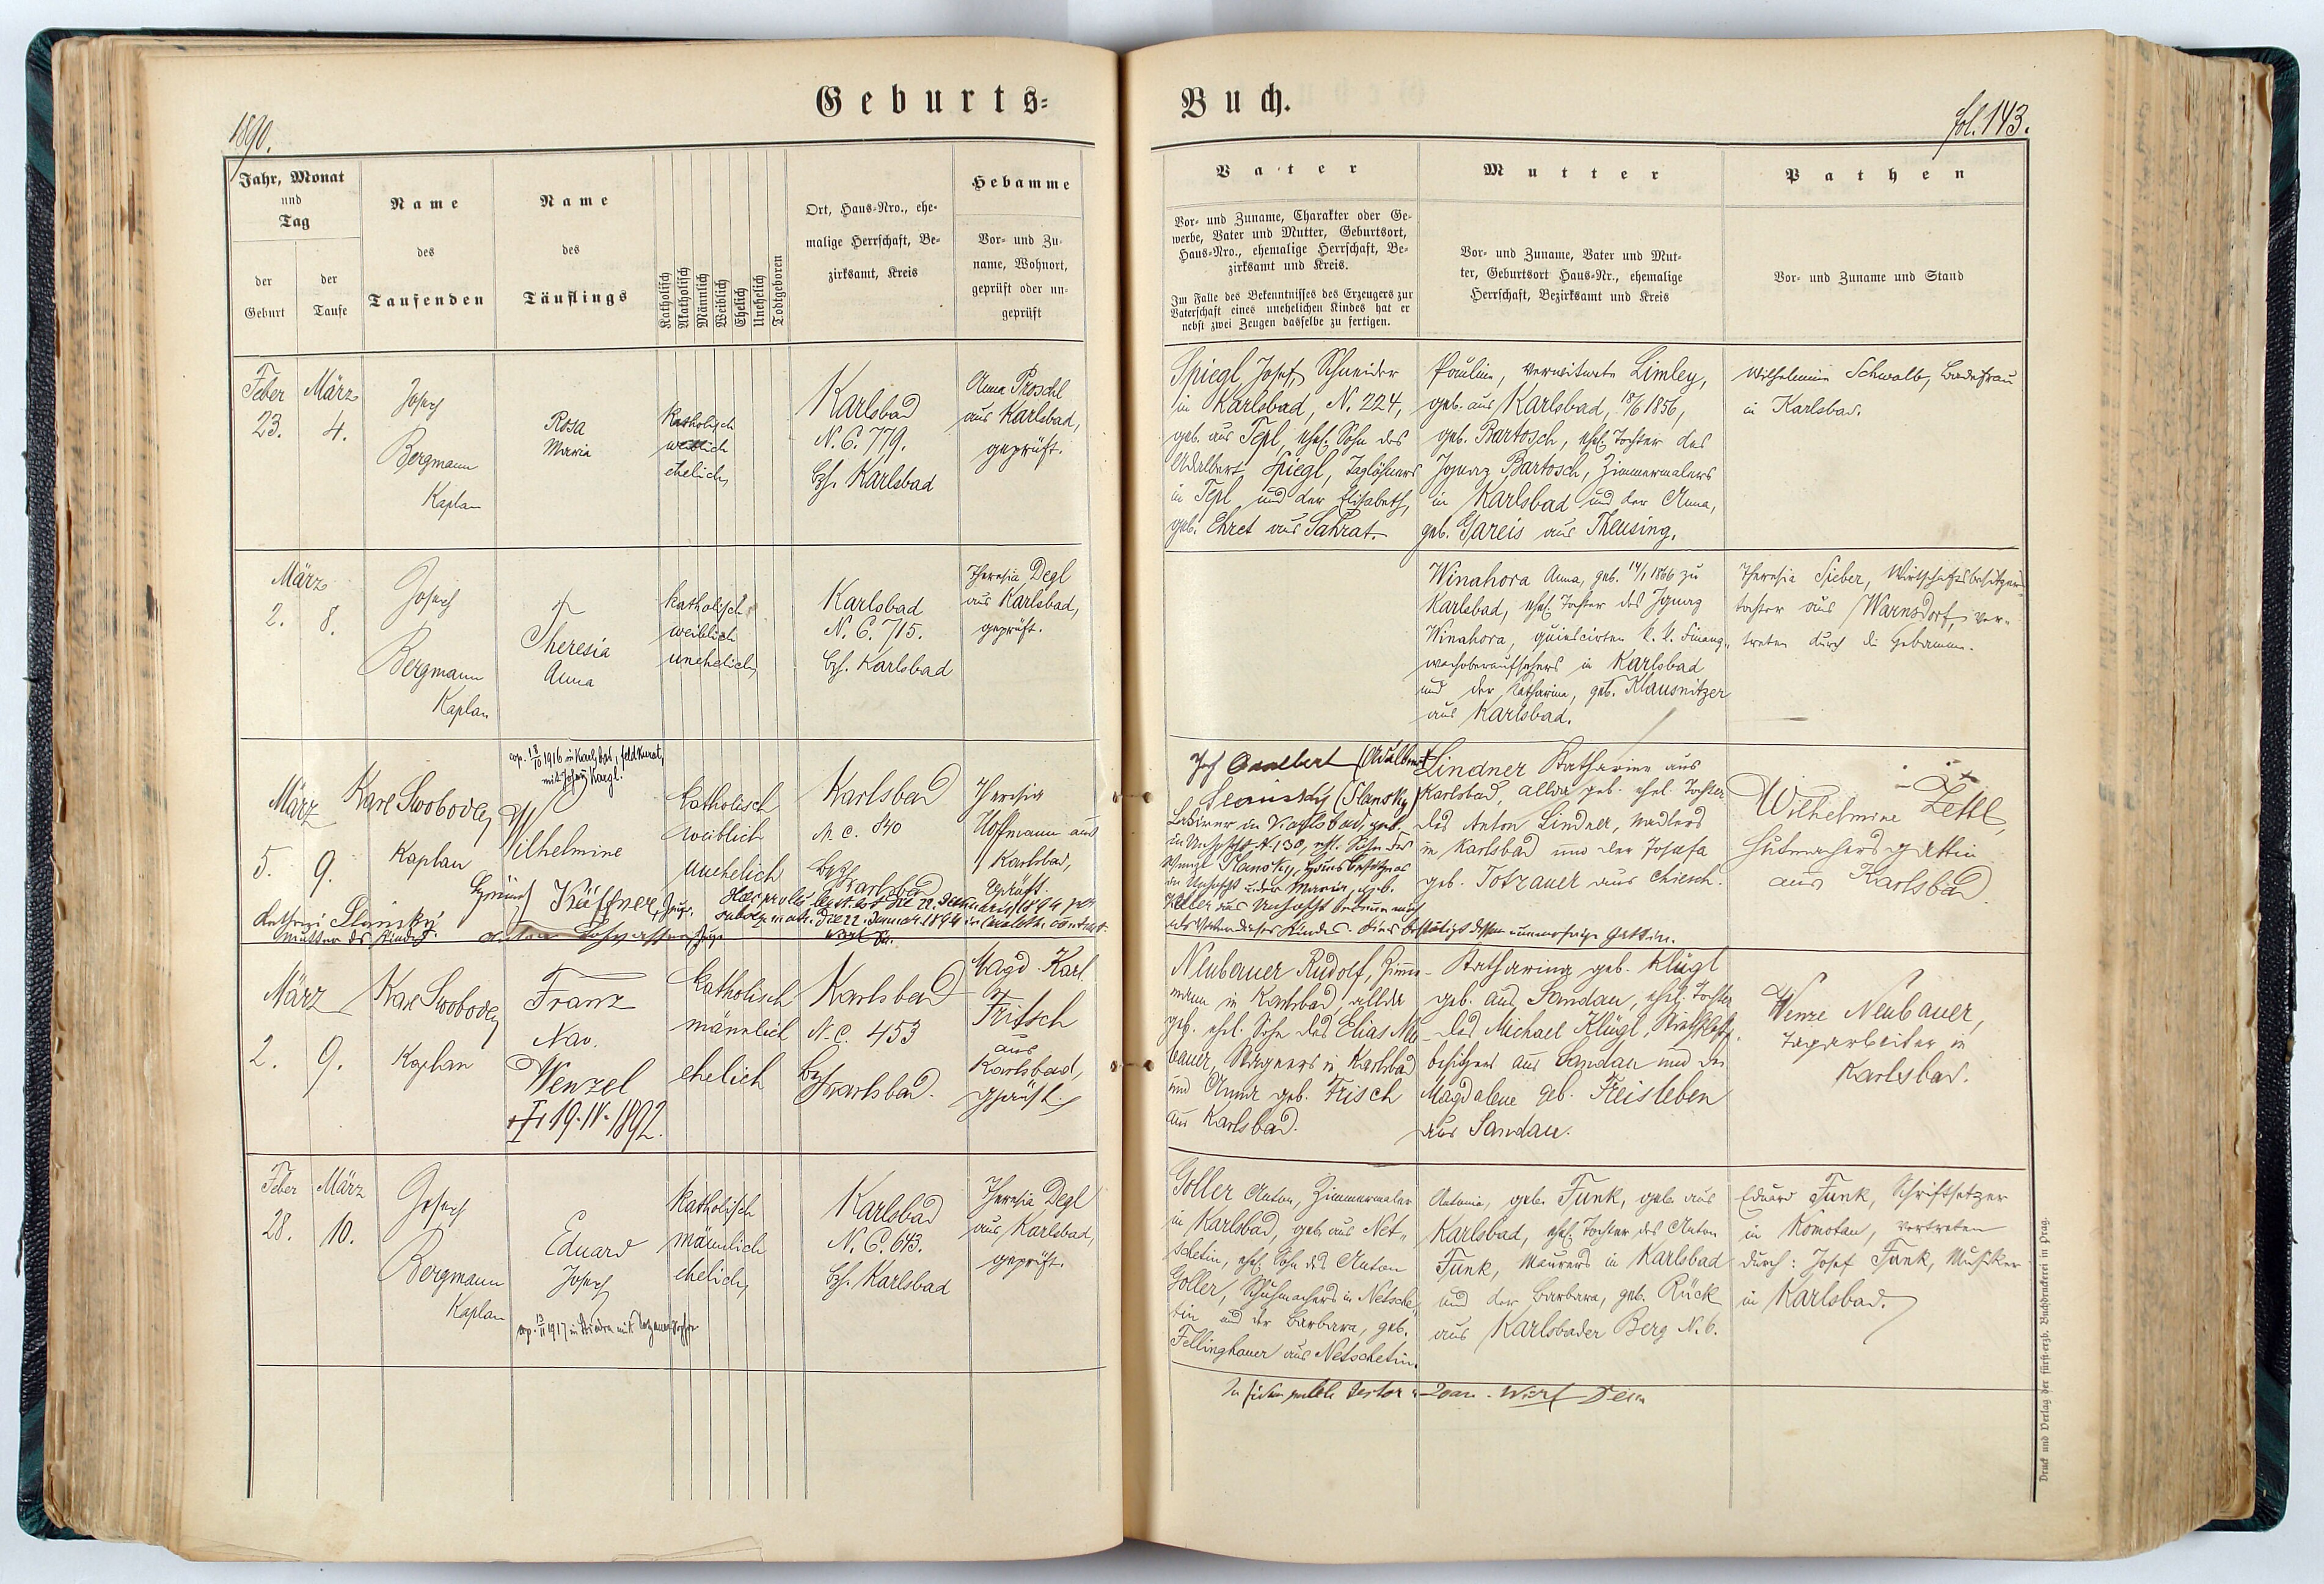 Geburts=
Buch.
1890.
fol. 143.
Jahr, Monat
und
Tag
der
Geburt
der
Taufe
Name
des
Taufenden
Name
des
Täuflings
Katholisch
Akatholisch
Männlich
Weiblich
Ehelich
Unehelich
Todtgeboren
Ort, Haus-Nro., ehe-
malige Herrschaft, Be-
zirksamt, Kreis
Hebamme
Vor- und Zu-
name, Wohnort,
geprüft oder un-
geprüft
Vater
Vor- und Zuname, Charakter oder Ge-
werbe, Vater und Mutter, Geburtsort,
Haus-Nro., ehemalige Herrschaft, Be-
zirksamt und Kreis.
Im Falle des Bekenntnisses des Erzeugers zur
Vaterschaft eines unehelichen Kindes hat er
nebst zwei Zeugen dasselbe zu fertigen.
Mutter
Vor- und Zuname, Vater und Mut-
ter, Geburtsort Haus-Nr., ehemalige
Herrschaft, Bezirksamt und Kreis
Pathen
Vor- und Zuname und Stand
Feber
23.
März
4.
Josef
Bergmann
Kaplan
Rosa
Maria
katholisch
weiblich
ehelich
Karlsbad
N. C. 779.
Bzh. Karlsbad
Anna Proschl
aus Karlsbad,
geprüft.
Spiegl, Josef, Schneider
in Karlsbad, N. 224,
geb. aus Tepl, ehel. Sohn des
Adalbert Spiegl, Taglöhners
in Tepl und der Elisabeth,
geb. Ehret aus Sahrat.
Pauline, verwitwete Limley,
geb. aus Karlsbad, 18/6 1856,
geb. Bartosch, ehel. Tochter des
Ignaz Bartosch, Zimmermalers
in Karlsbad und der Anna,
geb. Gareis aus Theusing.
Wilhelmine Schwalb, Badefrau
in Karlsbad.
März
2. 8.
Josef
Bergmann
Kaplan
Theresia
Anna
katholisch
weiblich
unehelich
Karlsbad
N. C. 715.
Bzh. Karlsbad
Theresia Degl
aus Karlsbad,
geprüft.
Winahora Anna, geb. 14/1 1866 zu
Karlsbad, ehel. Tochter des Ignaz
Winahora, quiescirten k. k. Finanz-
wachoberaufsehers in Karlsbad
und der Katharina, geb. Klausnitzer
aus Karlsbad.
Theresia Sieber, Wirtschaftsbesitzers-
tochter aus Warnsdorf, ver-
treten durch die Hebamme.
cop. 18/10 1916 in Karlsbad, Feldkurat,
mit Josef Kargl.
März
5. 9.
Karl Swoboda
Kaplan
Wilhelmine
katholisch
weiblich
unehelich
Karlsbad
N. C. 840
Bzh Karlsbad
Theresia
Hoffmann aus
Karlsbad,
geprüft.
Käffner, Zeuge.
Slansky
Mutter des Kindes
Adalbert (Adalbert
Slansky (Slansky)
Lackirer in Karlsbad, geb.
Lindner Katharina aus
Karlsbad, allda geb. ehel. Tochter
des Anton Lindner, Nadlers
in Karlsbad und der Josefa
geb. Totzauer aus Chiesch.
Wilhelmine Zettl,
Hutmachersgattin
aus Karlsbad.
März
2. 9.
Karl Swoboda
Kaplan
Franz
Xav.
Wenzel
† 19. IV. 1892.
katholisch
männlich
ehelich
Karlsbad
N. C. 453
Bzh Karlsbad.
Magd. Karl.
Fritsch
aus
Karlsbad,
geprüft.
Neubauer Rudolf, Zimmer-
mann in Karlsbad, allda
geb. ehel. Sohn des Elias Neu-
bauer, Wagners in Karlsbad
und Anna geb. Frisch
aus Karlsbad.
Katharina geb. Klügl
geb. aus Sandau, ehel. Tochter
des Michael Klügl, Wirthschafts-
besitzers aus Sandau und der
Magdalene geb. Freisleben
aus Sandau.
Wenzel Neubauer,
Tagarbeiter in
Karlsbad.
Feber
28.
März
10.
Josef
Bergmann
Kaplan
Eduard
Josef
katholisch
männlich
ehelich
Karlsbad
N. C. 643.
Bzh. Karlsbad
Theresia Degl
aus Karlsbad,
geprüft.
Goller Anton, Zimmermaler
in Karlsbad, geb. aus Net-
schetin, ehel. Sohn des Anton
Goller, Schuhmachers in Netsche-
tin und der Barbara, geb.
Fellinghauer aus Netschetin.
Antonia, geb. Funk, geb. aus
Karlsbad, ehel. Tochter des Anton
Funk, Maurers in Karlsbad
und der Barbara, geb. Rück
aus Karlsbader Berg N. 6.
Eduard Funk, Schriftsetzer
in Komotau, vertreten
durch: Josef Funk, Musiker
in Karlsbad.
Druck und Verlag der fürst-erzb. Buchdruckerei in Prag.